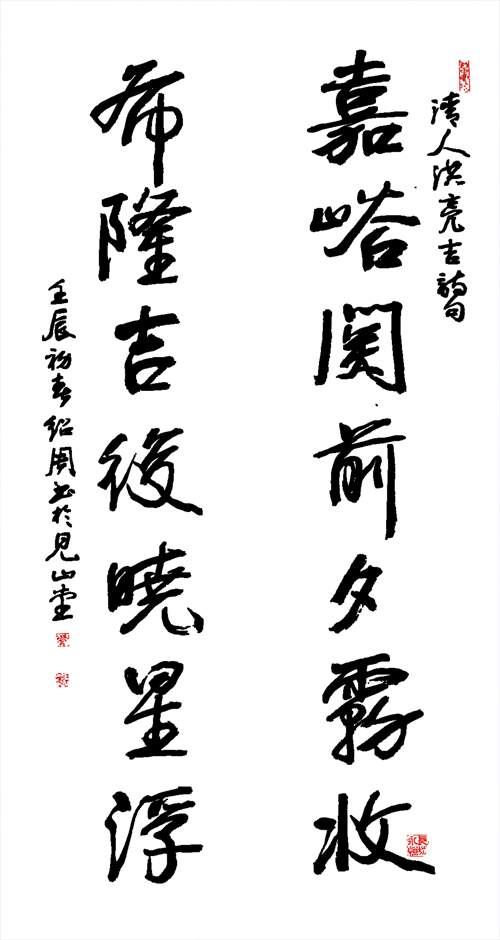 清人洪亮吉詩句
嘉峪関前夕霧收
希隆吉後曉星浮
壬辰初春紹周書於見山堂